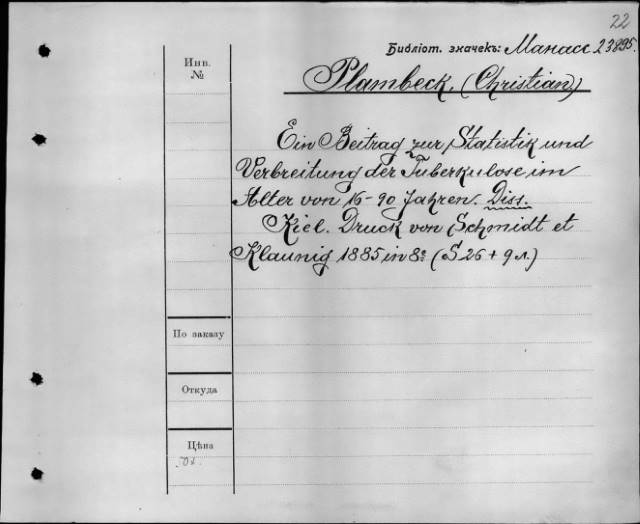 22
Библіот. значекъ: Манасс 23895.
Инв.
№
Plambeck, (Christian)
Ein Beitrag zur Statistik und
Verbreitung der Tuberkulose im
Alter von 16-90 Jahren. Diss.
Kiel. Druck von Schmidt et
Klaunig 1885 in 8º (S 26 + 9 л.)
По заказу
Откуда
Цѣна